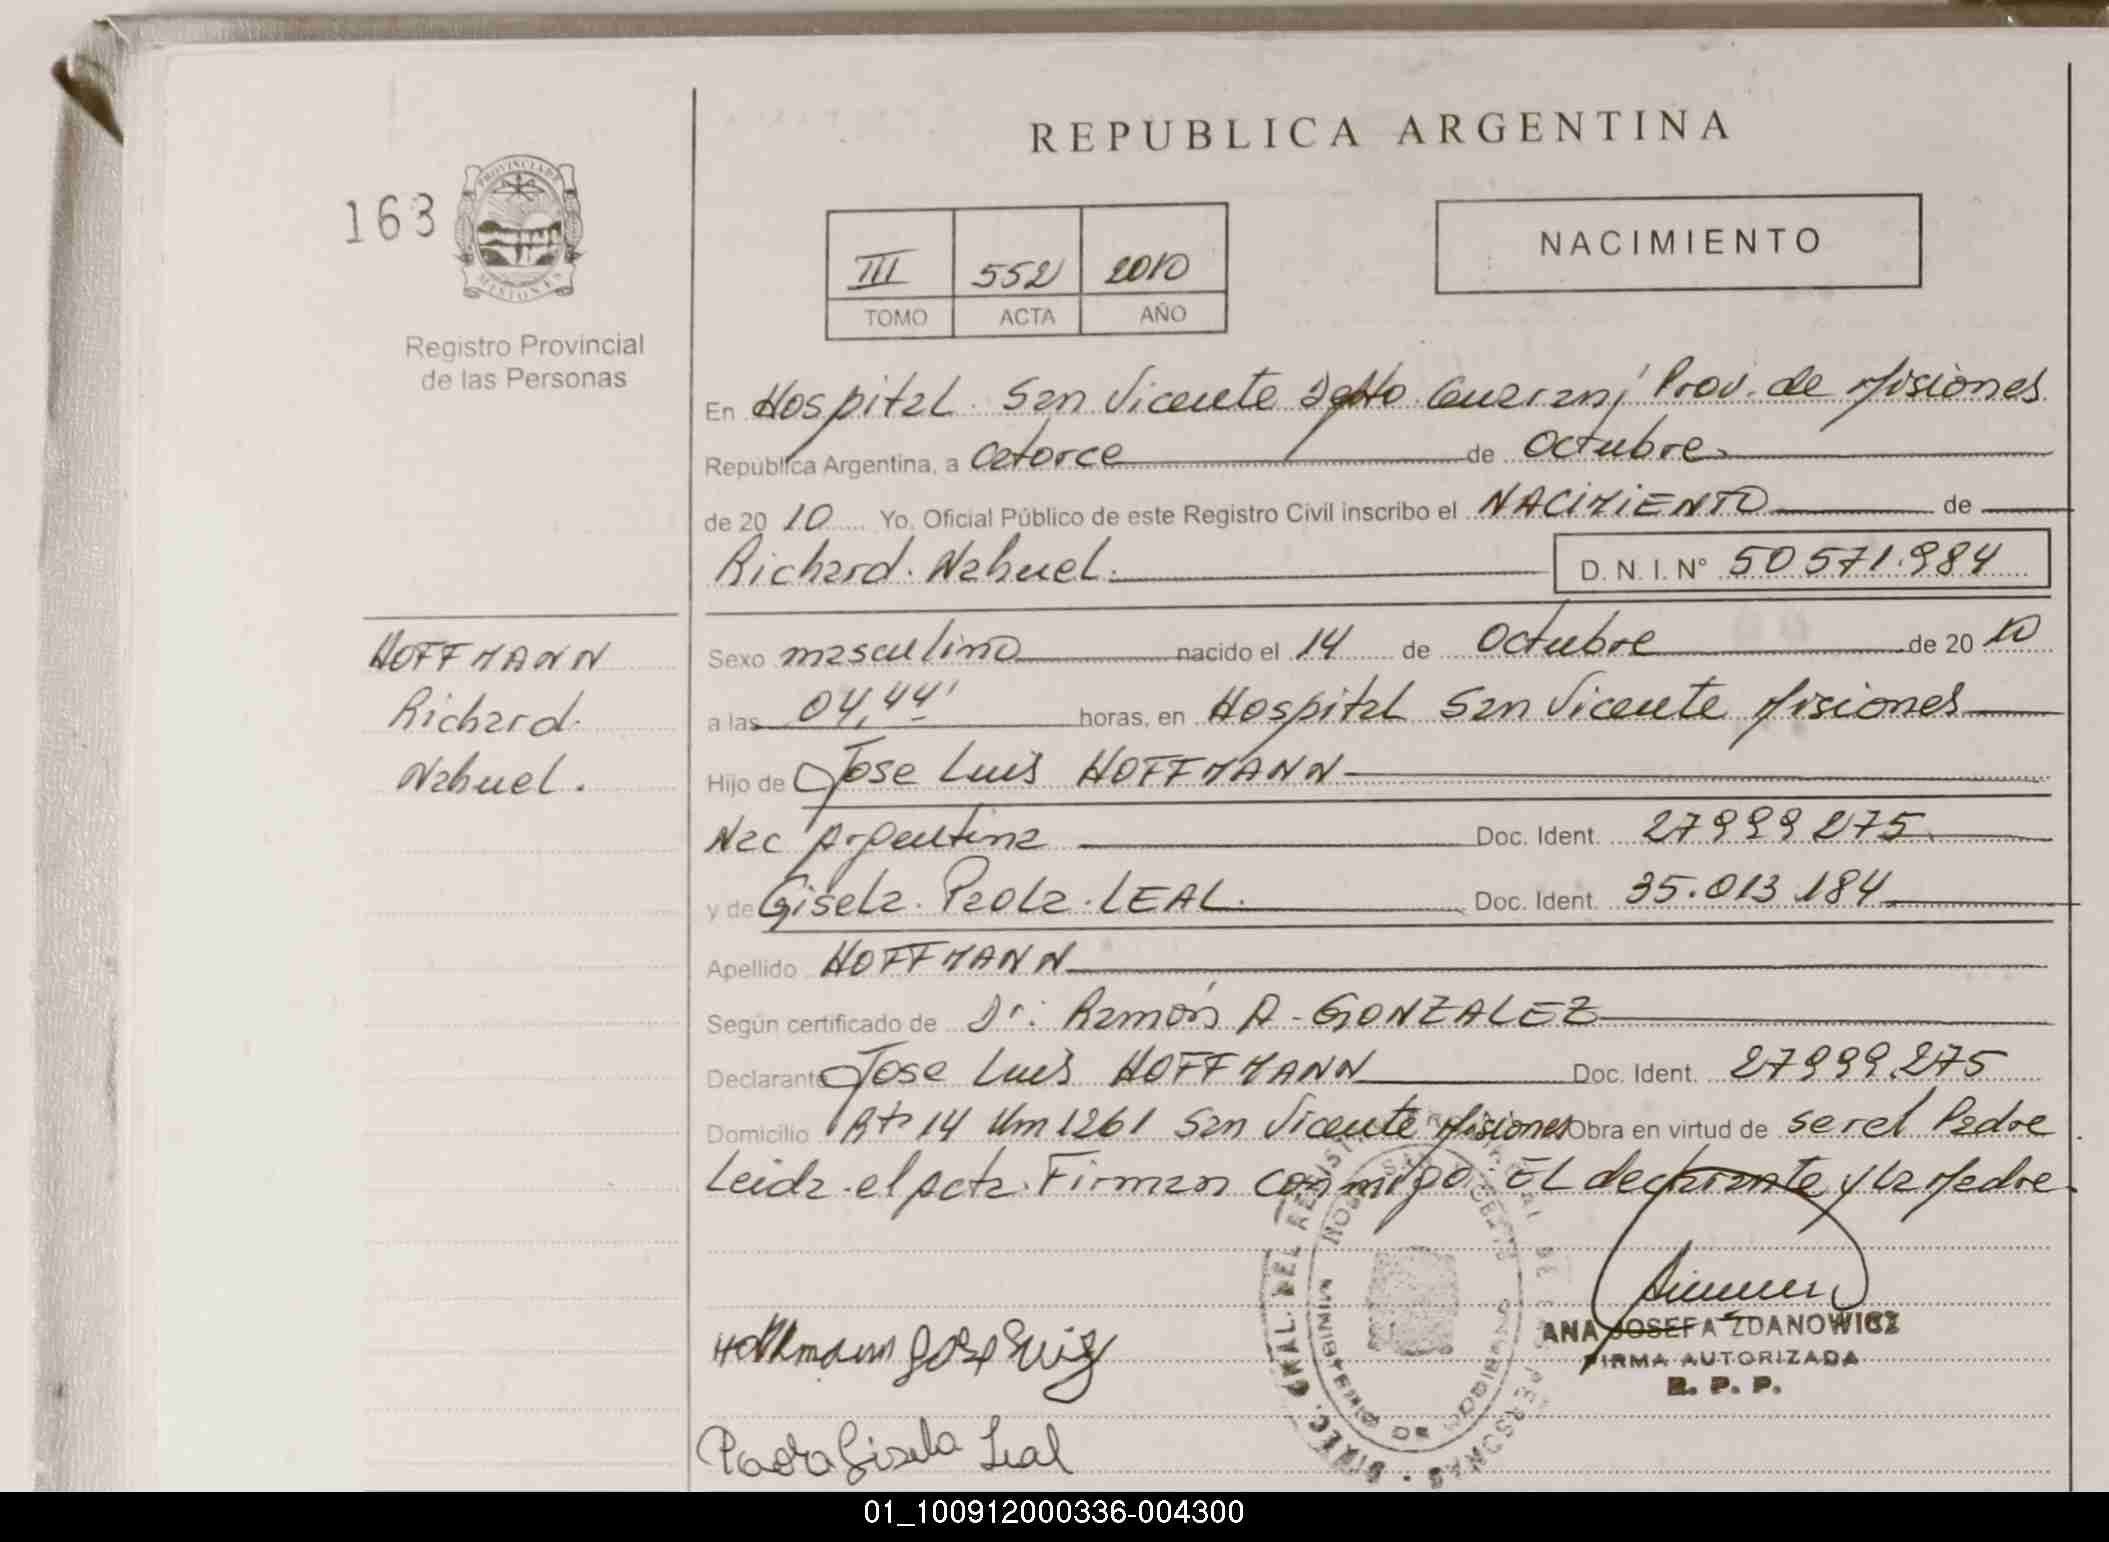 REPUBLICA ARGENTINA
163
PROVINCIA DE
MISIONES
Registro Provincial
de las Personas
III 552 2010
TOMO ACTA AÑO
NACIMIENTO
En Hospital San Vicente Dpto Guarani Prov. de Misiones
República Argentina, a Catorce de Octubre
de 20 10 Yo, Oficial Público de este Registro Civil inscribo el NACIMIENTO de
Richard Nahuel. D. N. I. N° 50 571.984
HOFFMANN
Richard
Nahuel.
Sexo masculino nacido el 14 de Octubre de 20 10
a las 04,44' horas, en Hospital San Vicente Misiones
Hijo de Jose Luis HOFFMANN
Nac Argentina Doc. Ident. 27999275
y de Gisela Paola LEAL. Doc. Ident. 35.013.184
Apellido HOFFMANN
Según certificado de Dr. Ramón A. GONZALEZ
Declarante Jose Luis HOFFMANN Doc. Ident. 27999.275
Domicilio Rta 14 Km 1261 San Vicente Misiones Obra en virtud de ser el Padre
Leida el acta Firman conmigo. EL declarante y la Madre
Hoffmann Jose Luis
ANA JOSEFA ZDANOWICZ
FIRMA AUTORIZADA
R. P. P.
Paola Gisela Leal
01_100912000336-004300